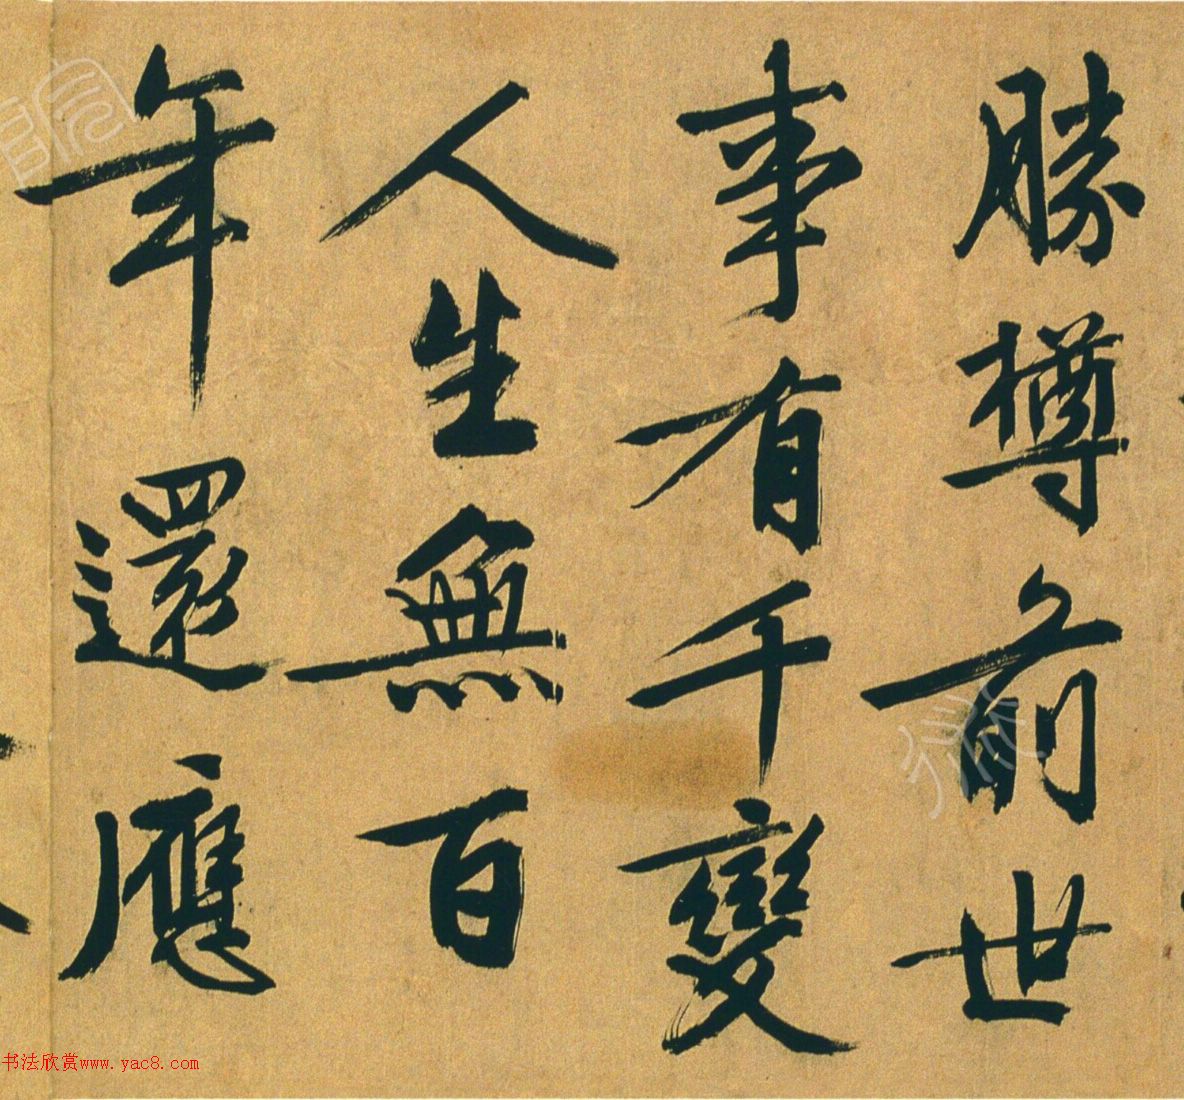 勝樽前世
事有千變
人生無百
年還應
书法欣赏www.yac8.com